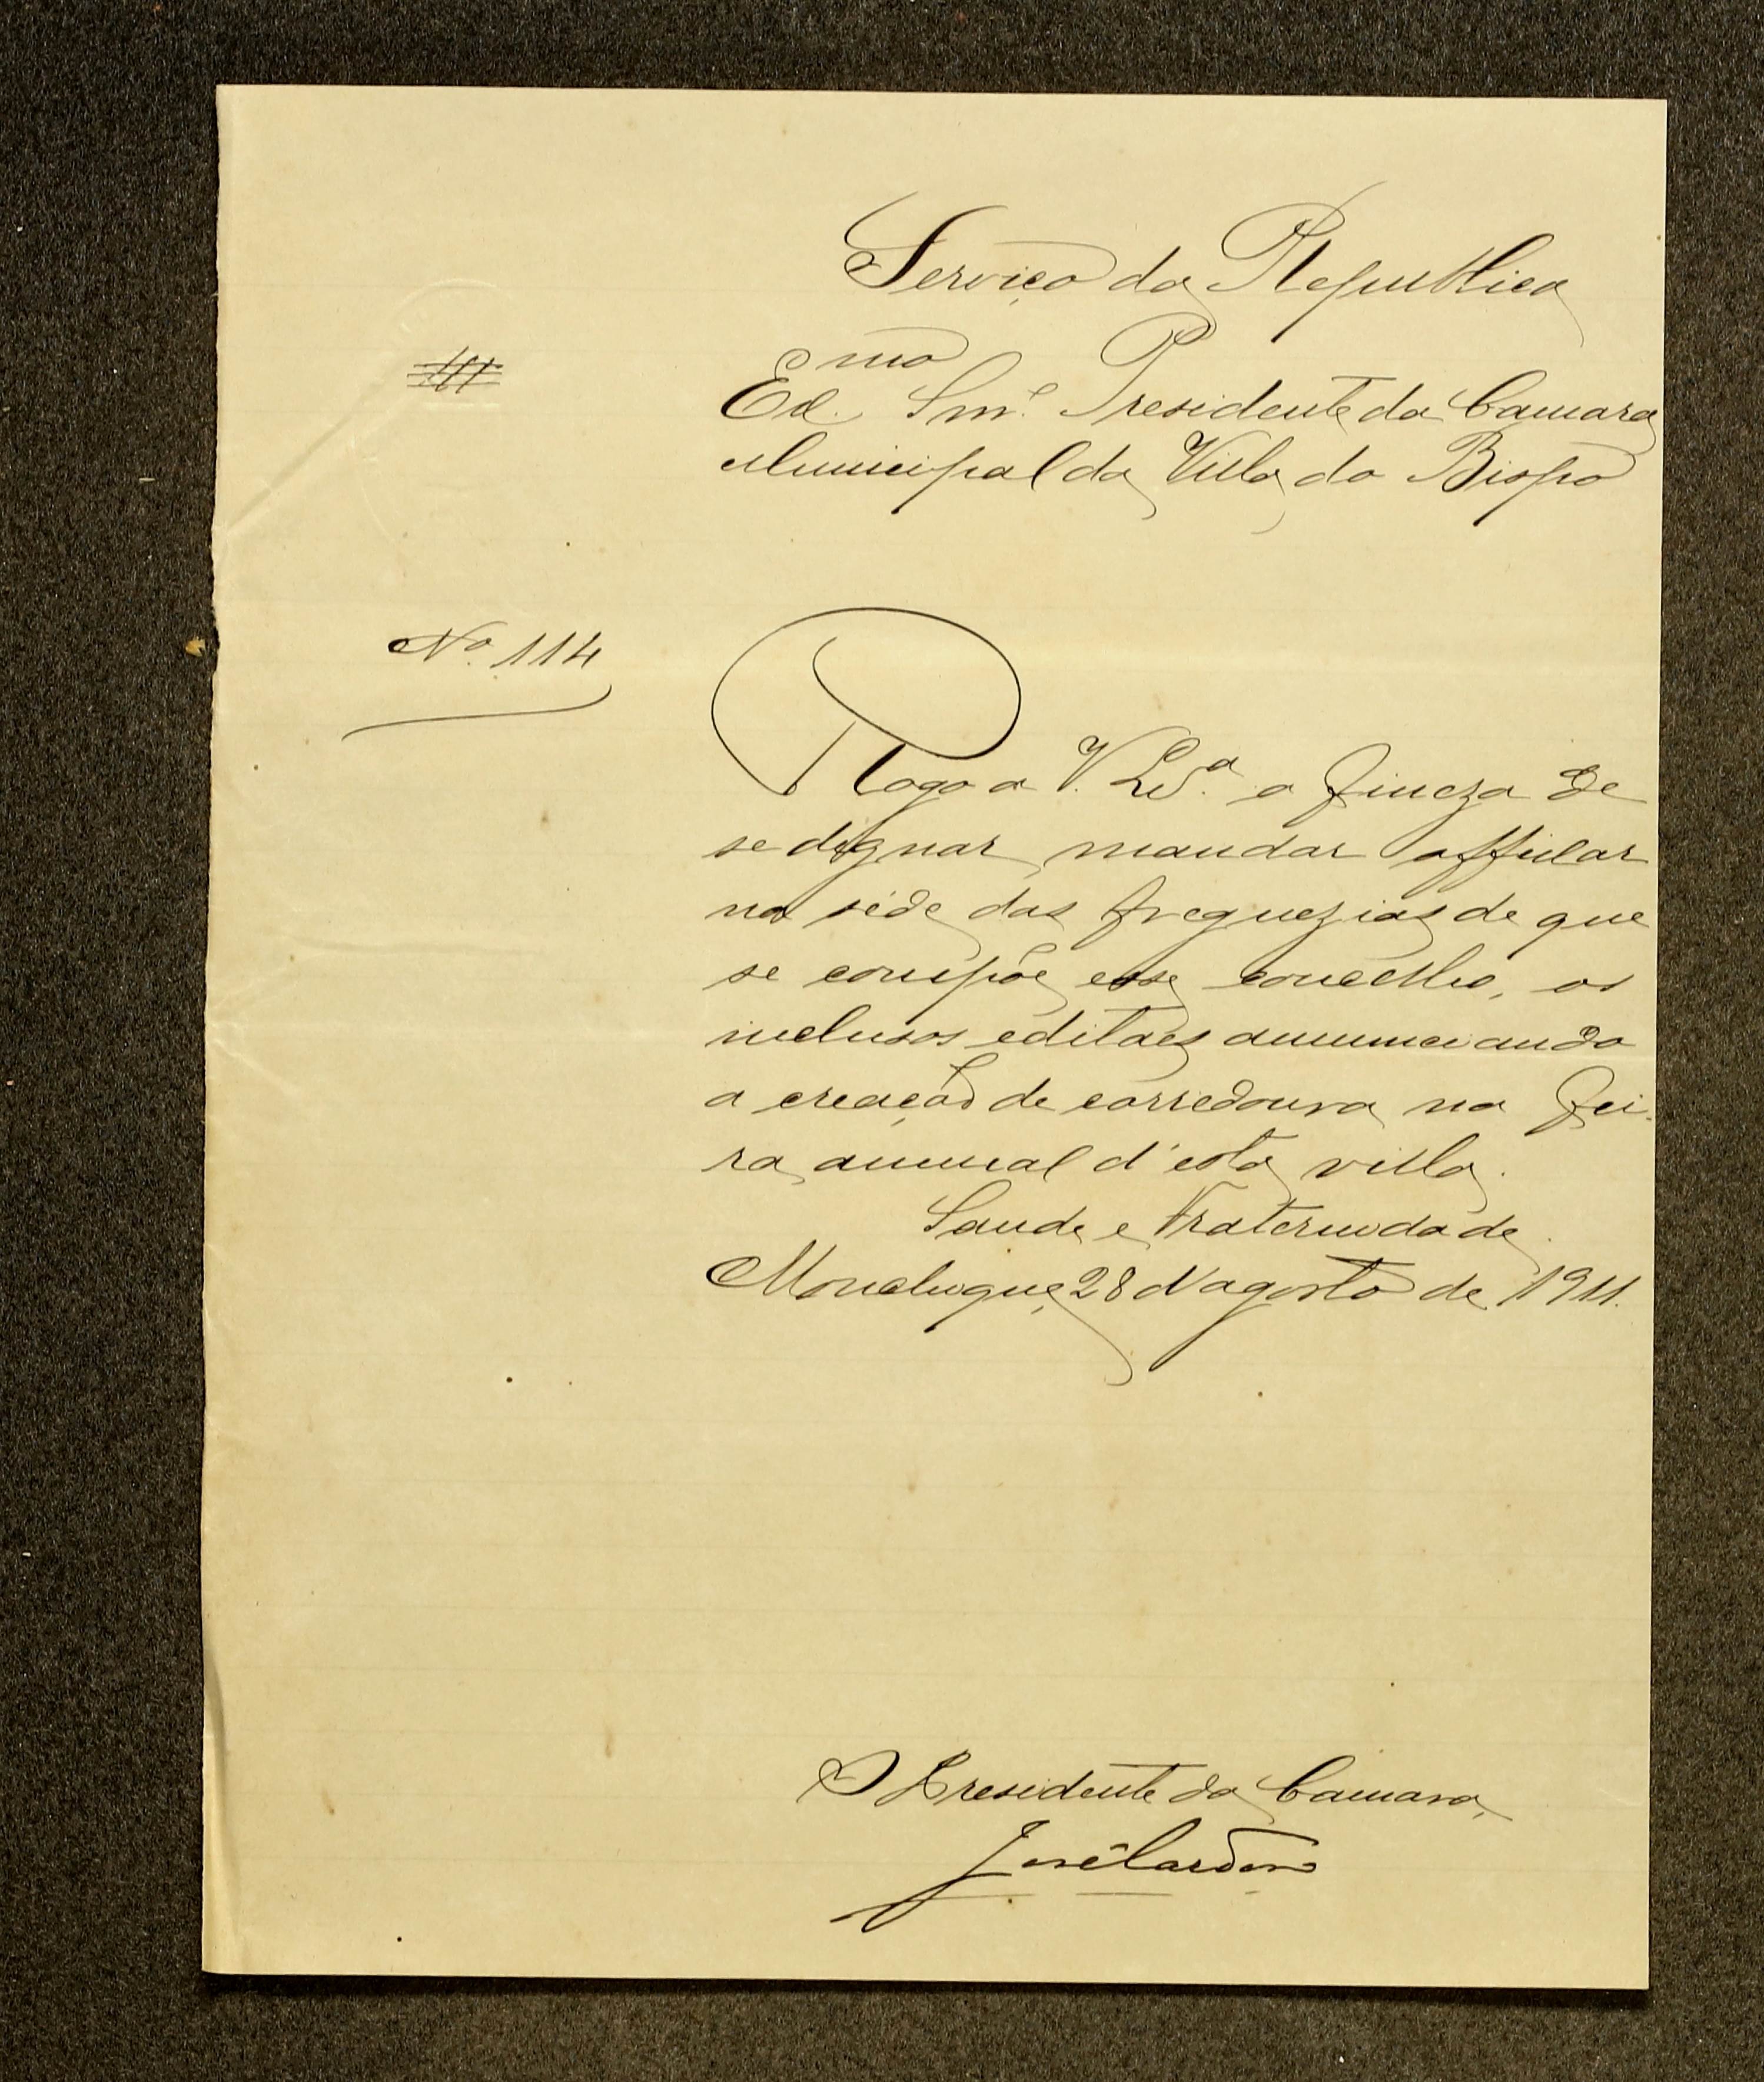 Serviço da Republica
Ex.mo Snr. Presidente da Camara
Municipal da Villa do Bispo
Nº 114
Rogo a V. Ex.ª a fineza de
se dignar mandar affixar
na séde das freguezias de que
se compõe esse concelho, os
inclusos editaes annunciando
a creação de corredoura na fei-
ra annual d'esta villa.
Saude e Fraternidade.
Monchique, 28 d'agosto de 1911.
O Presidente da Camara,
José